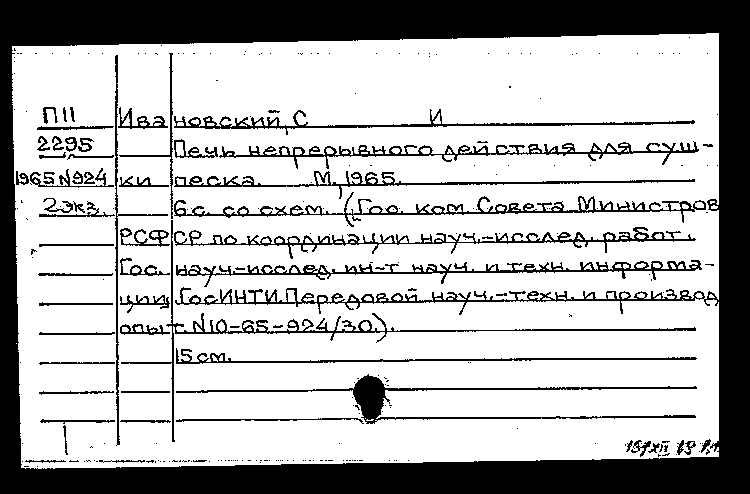 П11 Ивановский, С И
2295 Печь непрерывного действия для суш-
1965 N924 ки песка. М., 1965.
2экз. 6 с. со схем. (Гос. ком. Совета Министров
РСФСР по координации науч.-исслед. работ.
Гос. науч.-исслед. ин-т науч. и техн. информа-
ции. ГосИНТИ. Передовой науч.-техн. и производ
опыт. N10-65-924/30.).
15 см.